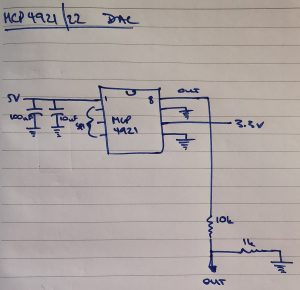 MCP 4921/22 DAC
OUT
5V
1 8
100nF 10uF
MCP
4921
3.3V
10k
1k
OUT